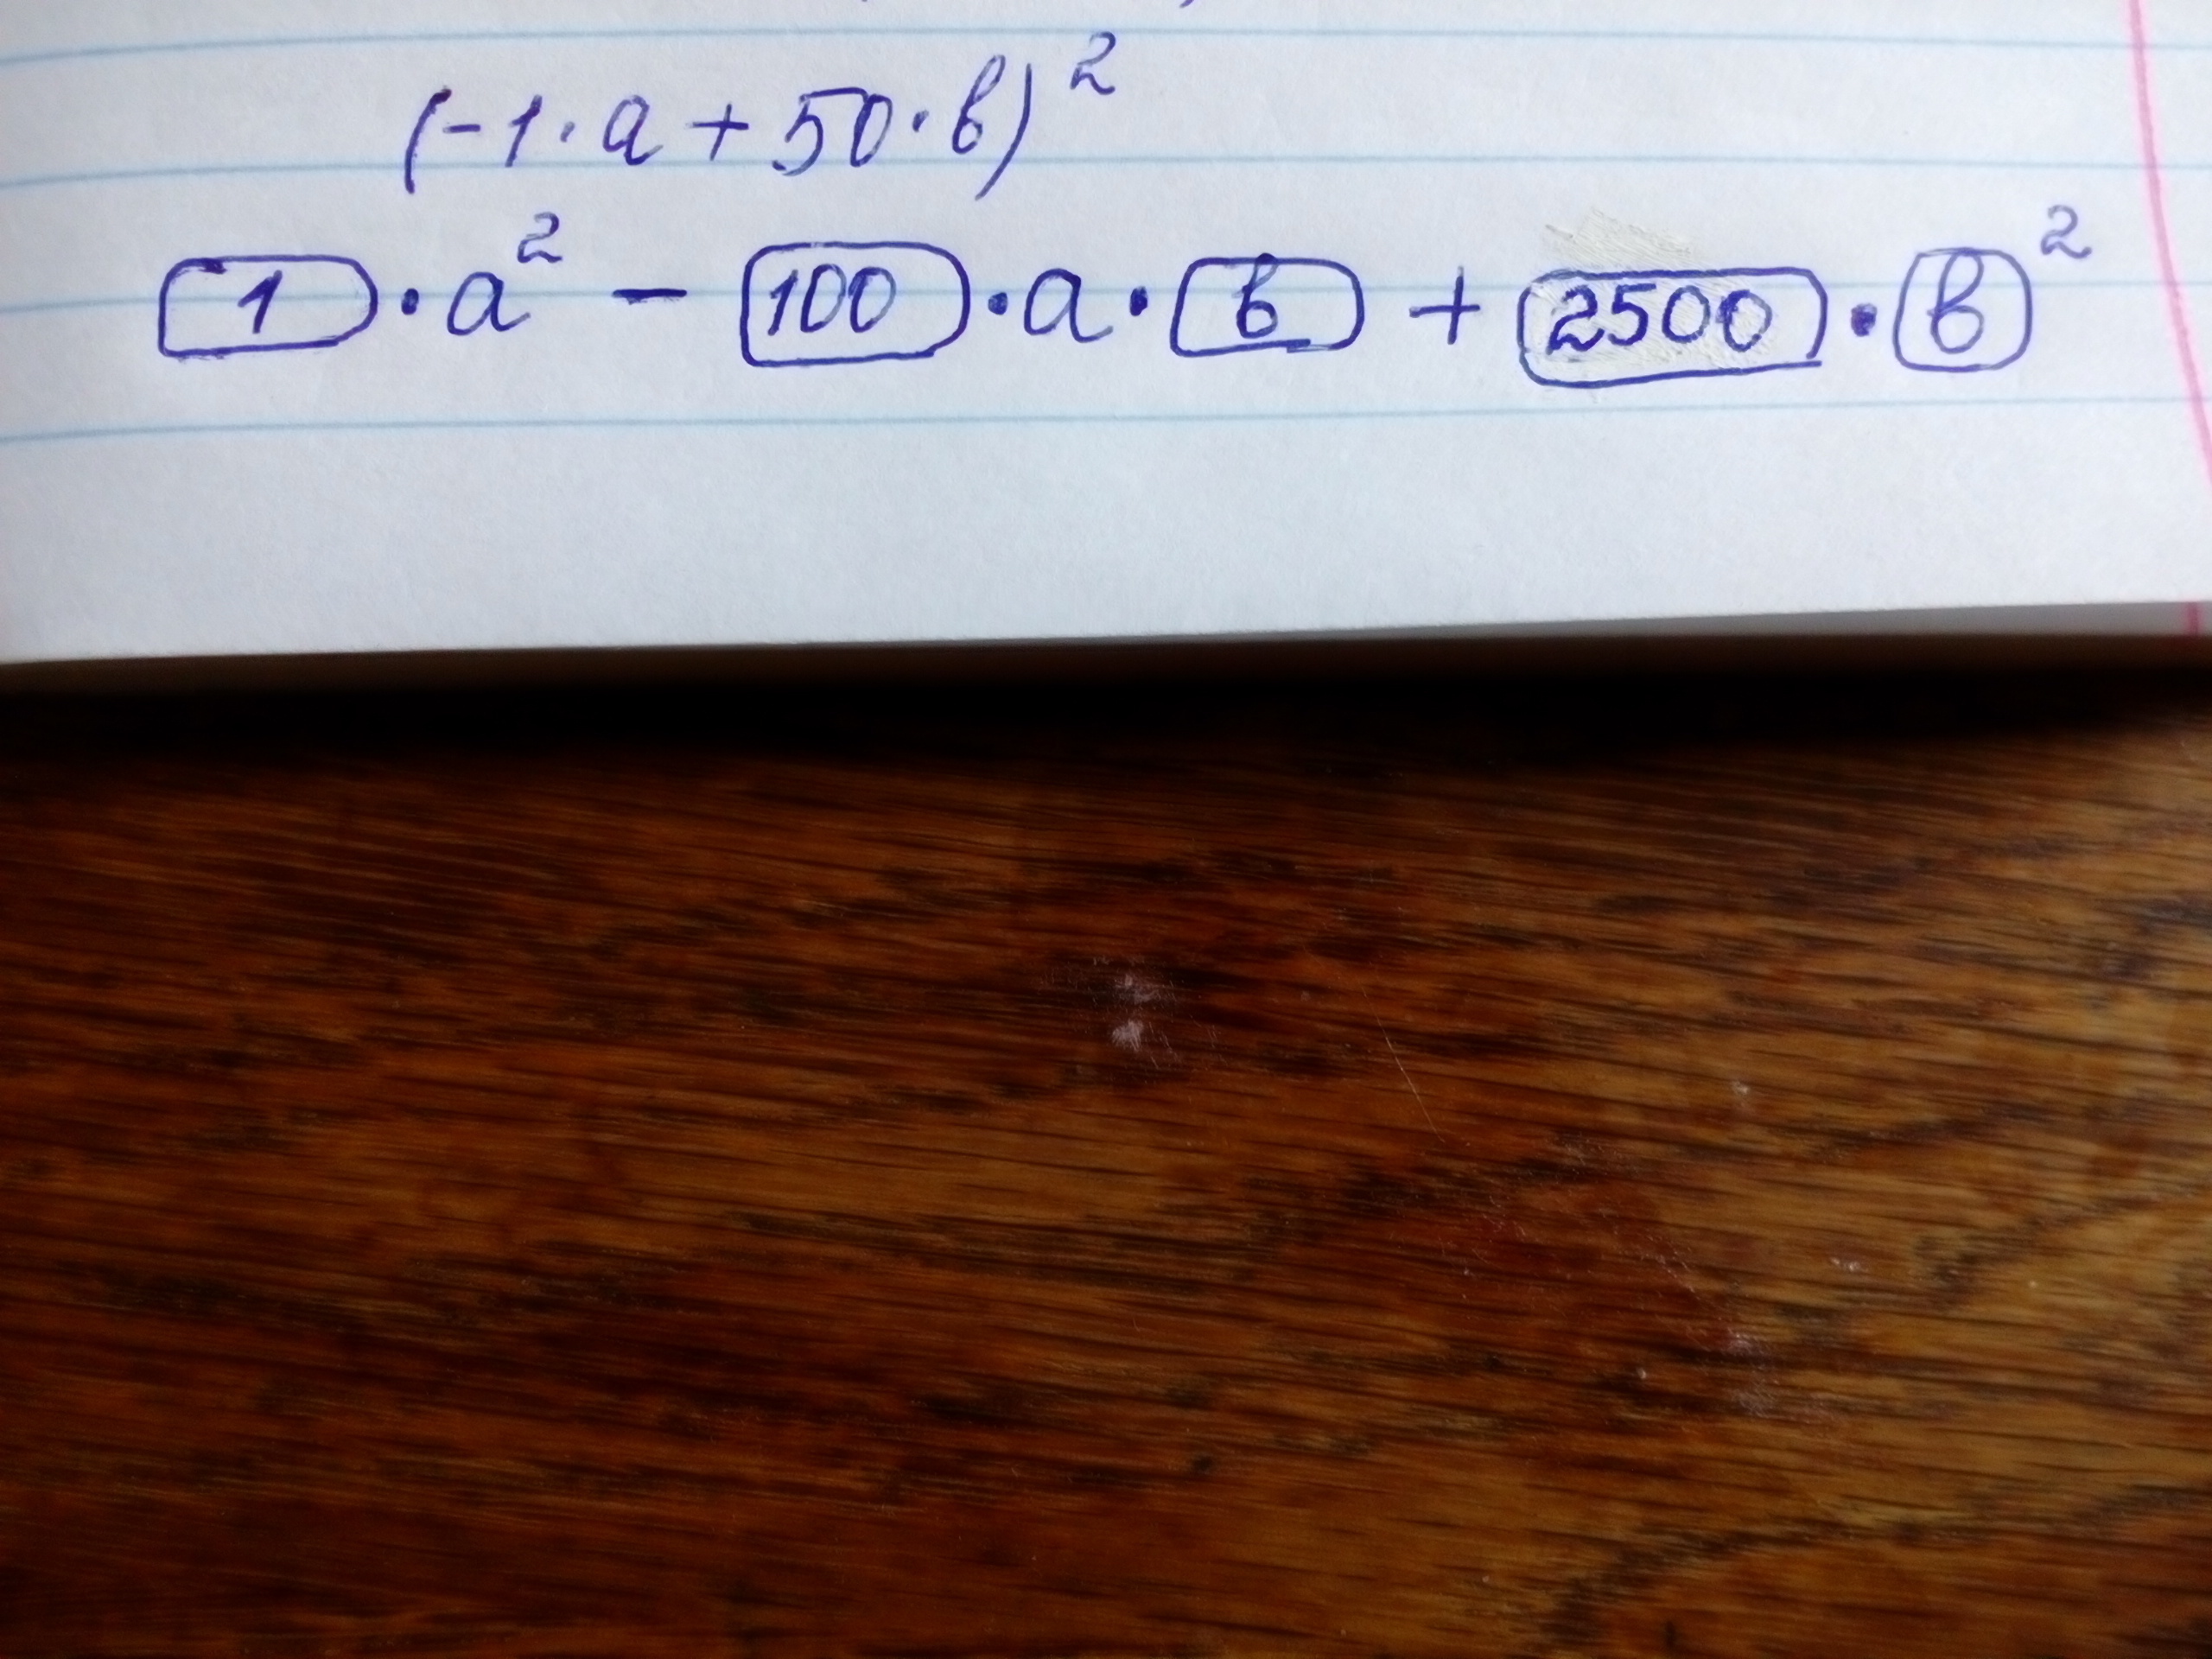 (-1·a+50·в)²
1·a² - 100·a·в + 2500·в²